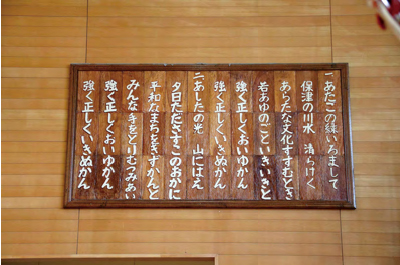 一 あたごの緑 いろまして
保津の川水 清らけく
あらたな文化 すすむとき
若あゆのごと いきいきと
強く正しく おいゆかん
強く正しく いきぬかん
二 あしたの光 山にはえ
夕日たださす このおかに
平和なまちを きずかんと
みんな手をとり むつみあい
強く正しく おいゆかん
強く正しく いきぬかん